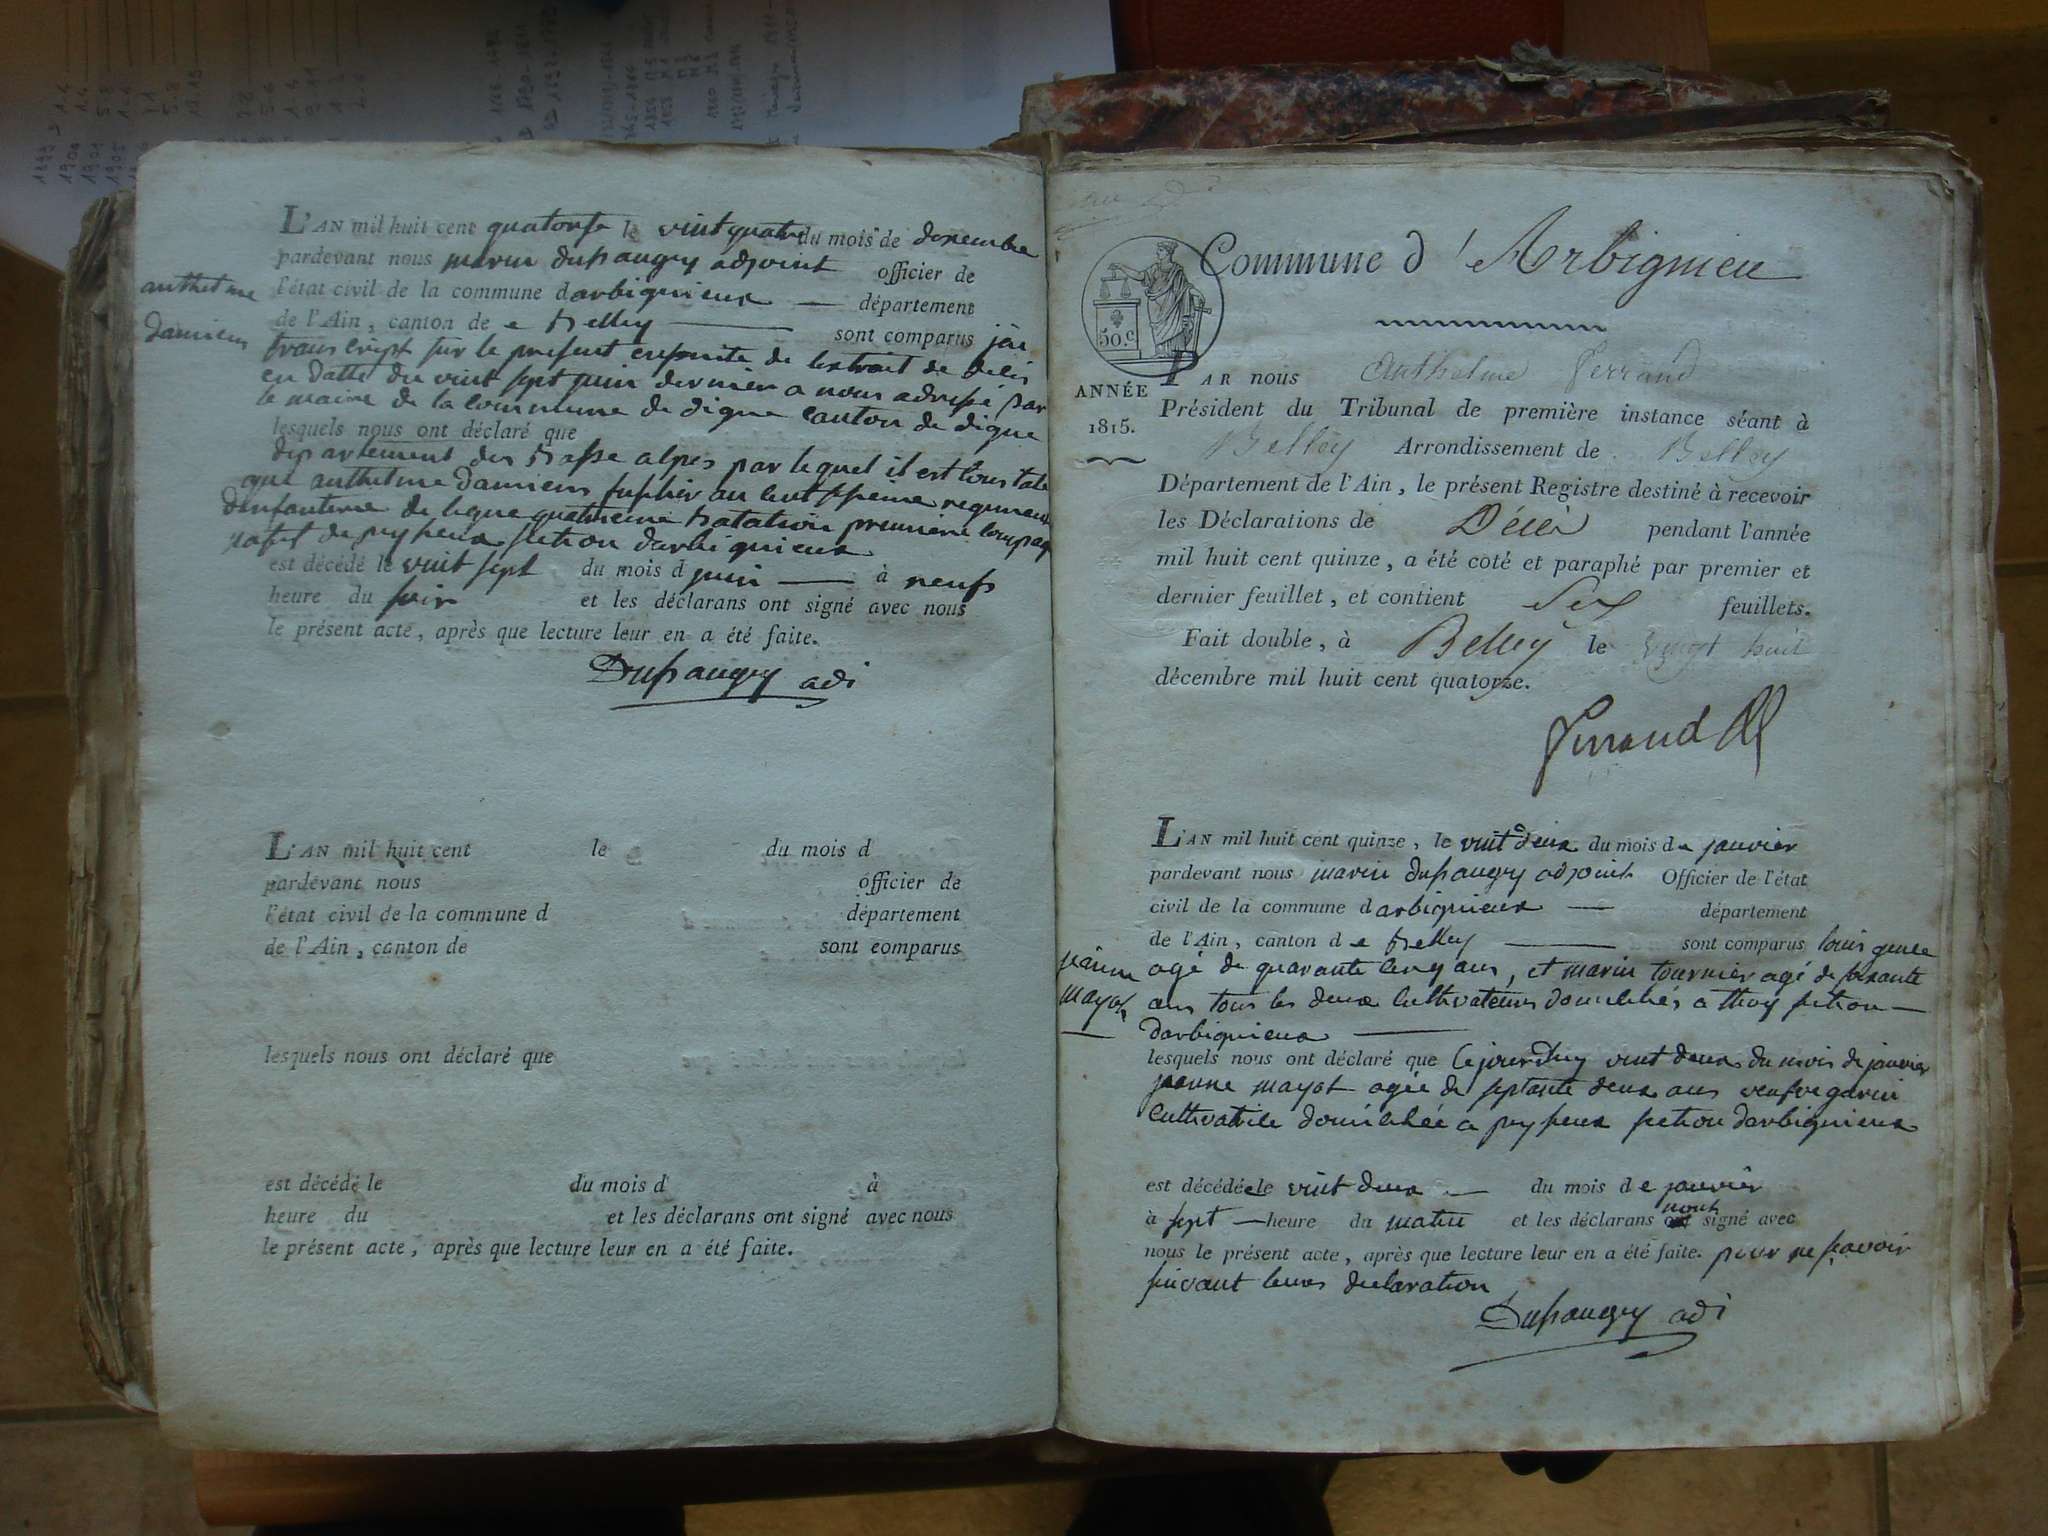 L'AN mil huit cent quatorse le vint quatre du mois de desembre
pardevant nous marin dupaugey adjoint officier de
l'état civil de la commune darbignieux — département
de l'Ain, canton de e belley — sont comparus jai
anthelme
damiens
transcript sur le present registre de lextrait de décès
en datte du vint sept juin dernier a nous adressé par
le maire de la commune de digne canton de digne
lesquels nous ont déclaré que
département des basse alpes par lequel il est constaté
que anthelme damiens fusilier au cent regiment
dinfanterie de ligne quatrieme batalion premiere compag
natif de pyhieux section darbignieux
est décédé le vint sept du mois d juin — à neufs
heure du soir et les déclarans ont signé avec nous
le présent acte, après que lecture leur en a été faite.
Dupaugey adj
L'AN mil huit cent le du mois d
pardevant nous officier de
l'état civil de la commune d département
de l'Ain, canton de sont comparus
lesquels nous ont déclaré que
est décédé le du mois d à
heure du et les déclarans ont signé avec nous
le présent acte, après que lecture leur en a été faite.
Commune d'Arbignieu
50.c
ANNÉE
1815.
PAR nous Anthelme Ferrand
Président du Tribunal de première instance séant à
Belley Arrondissement de Belley
Département de l'Ain, le présent Registre destiné à recevoir
les Déclarations de Décès pendant l'année
mil huit cent quinze, a été coté et paraphé par premier et
dernier feuillet, et contient Six feuillets.
Fait double, à Belley le vingt huit
décembre mil huit cent quatorze.
Ferrand
L'AN mil huit cent quinze, le vint deux du mois de janvier
pardevant nous marin dupaugey adjoint Officier de l'état
civil de la commune darbignieux — département
de l'Ain, canton d e belley — sont comparus louis
jeanne
mayot
agé de quarante cinq ans, et marin tournier agé de soixante
ans tous les deux cultivateurs domiciliés a thoy section —
darbignieux —
lesquels nous ont déclaré que cejourdhuy vint deux du mois de janvier
jeanne mayot agée de septante deux ans veufve garin
cultivatrice domiciliée a pyhieux section darbignieux
est décédée le vint deux — du mois d e janvier
à sept — heure du matin et les déclarans nont signé avec
nous le présent acte, après que lecture leur en a été faite. pour ne savoir
suivant leurs declaration
Dupaugey adj